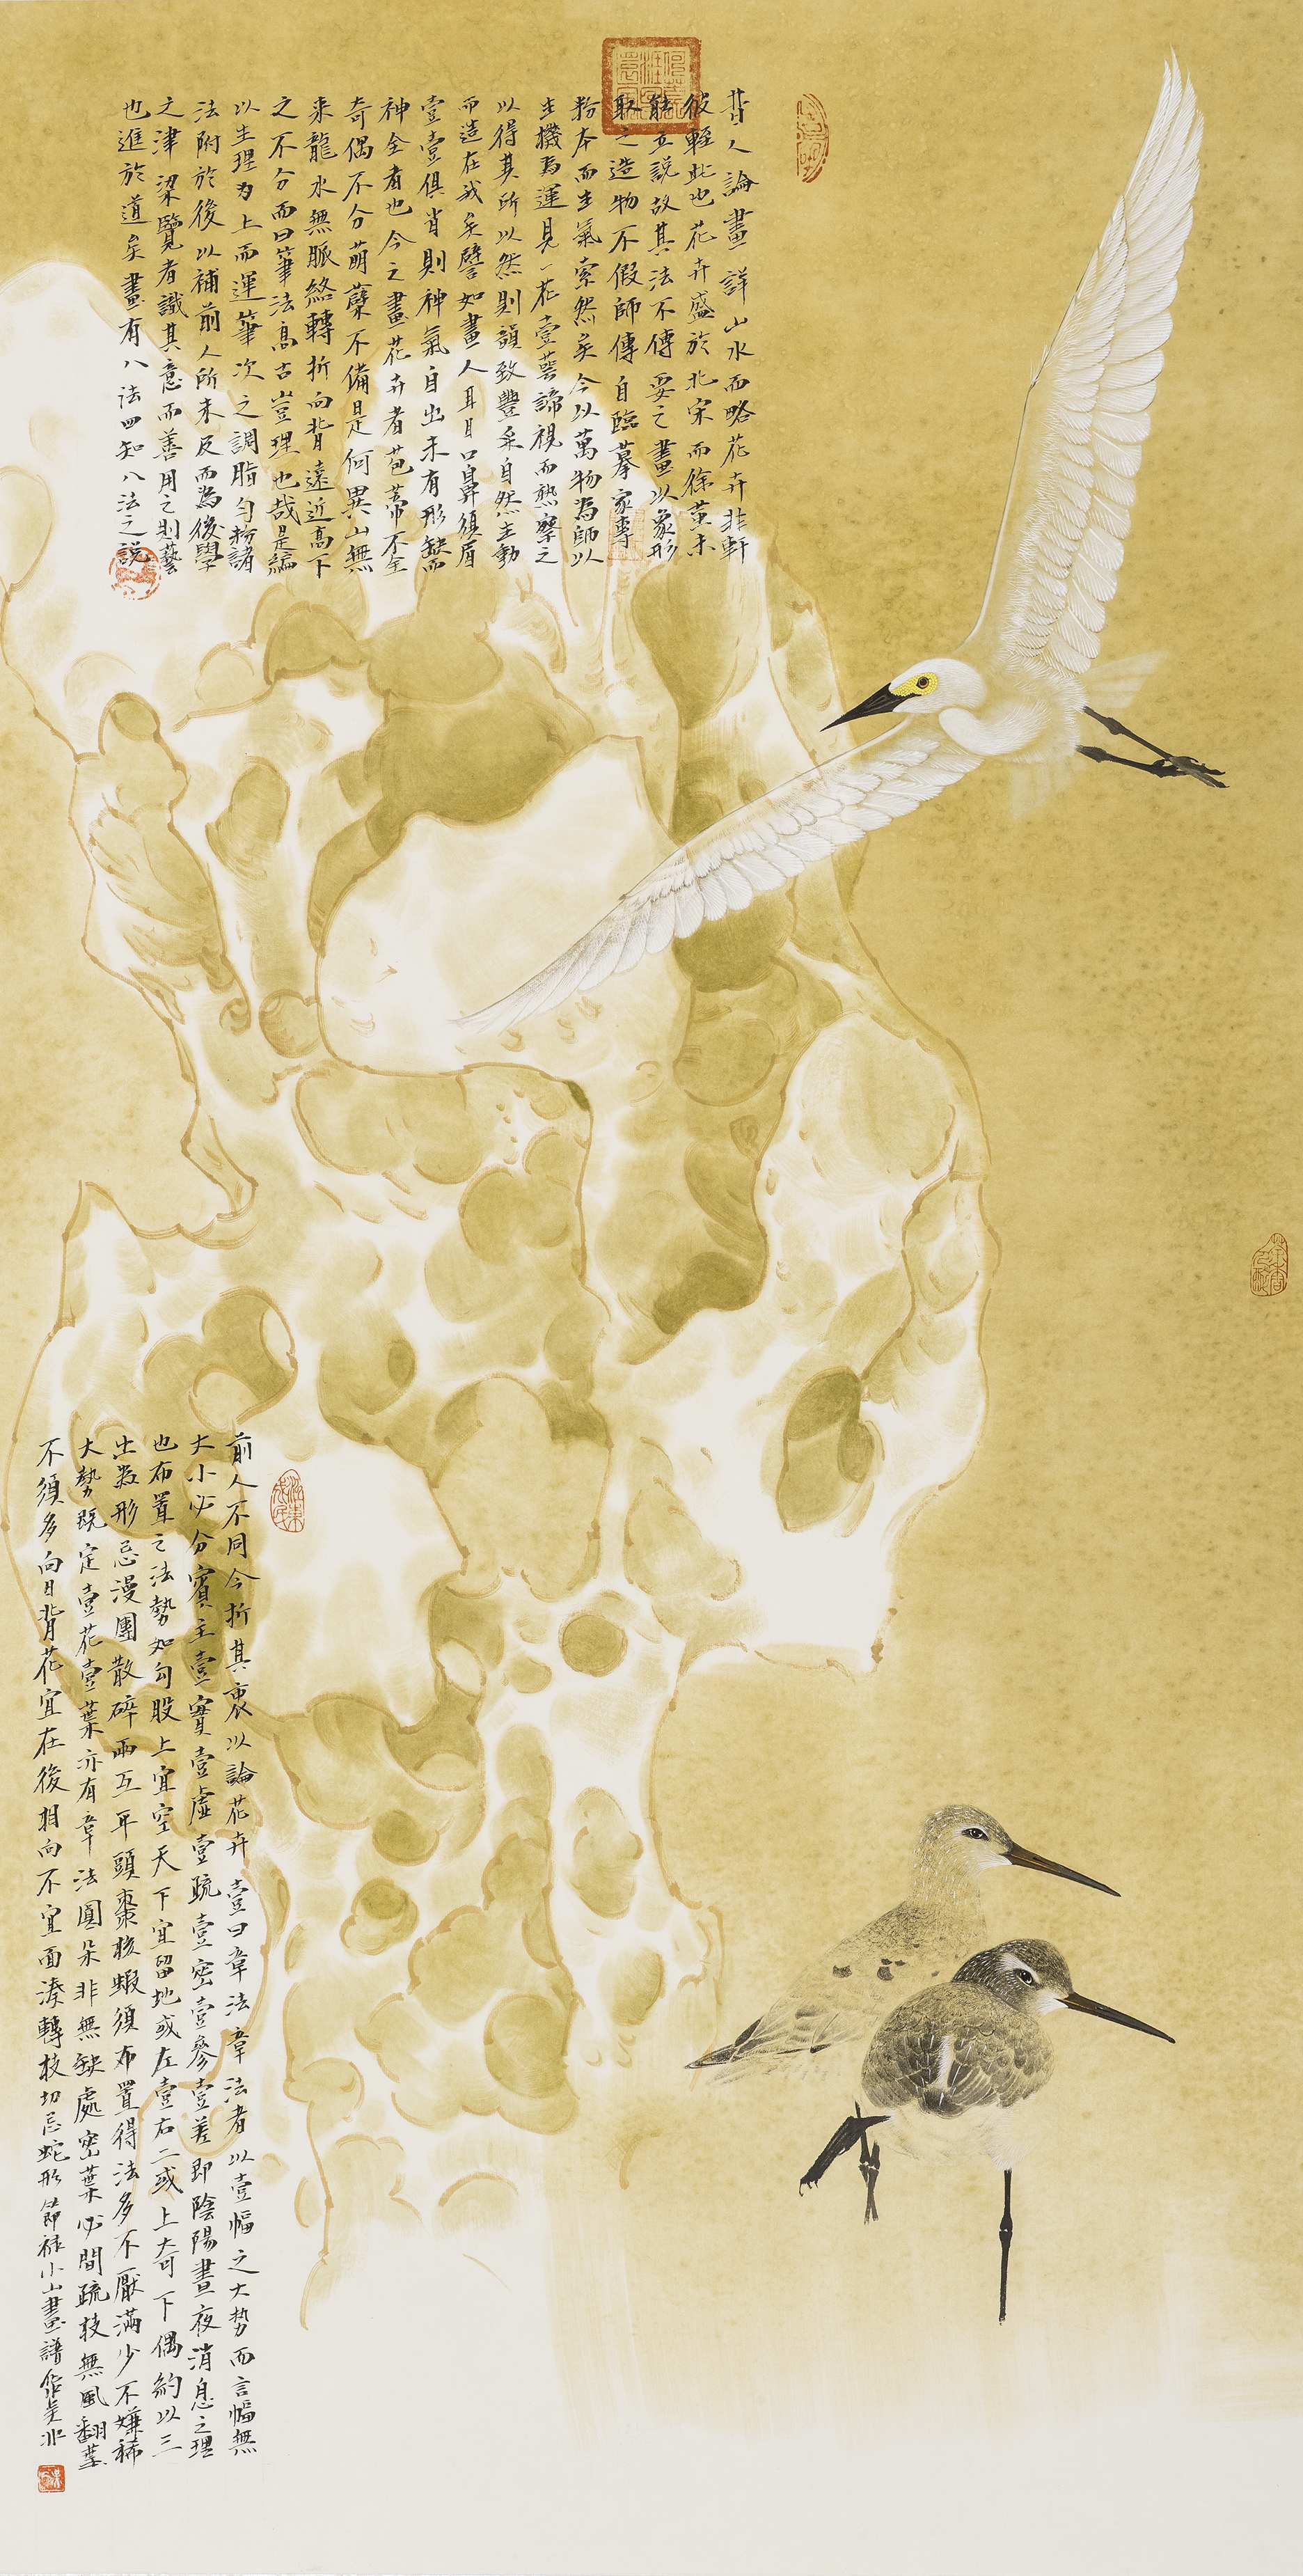 昔人論畫詳山水而略花卉非軒
彼輊此也花卉盛於北宋而徐黄未
能立說故其法不傳要之畫以象形
取之造物不假師傳自臨摹家專
粉本而生氣索然矣今以萬物為師以
生機為運見一花壹萼諦視而熟察之
以得其所以然則韻致豐采自然生動
而造在我矣譬如畫人耳目口鼻須眉
壹壹俱肖則神氣自出未有形缺而
神全者也今之畫花卉者苞蒂不全
奇偶不分萌蘖不備是何異山無
來龍水無脈絡轉折向背遠近高下
之不分而曰筆法高古豈理也哉是編
以生理為上而運筆次之調脂勻粉諸
法附於後以補前人所未及而為後學
之津梁覽者識其意而善用之則藝
也進於道矣畫有八法四知八法之說
前人不同今折其衷以論花卉壹曰章法章法者以壹幅之大势而言幅無
大小必分賓主壹實壹虛壹疏壹密壹參壹差即陰陽晝夜消息之理
也布置之法勢如勾股上宜空天下宜留地或左壹右二或上奇下偶約以三
出為形忌漫團散碎兩互平頭棗核蝦須布置得法多不厭滿少不嫌稀
大勢既定壹花壹葉亦有章法圓朵非無缺處密葉必間疏枝無風翻葉
不須多向日背花宜在後相向不宜面湊轉枝切忌蛇形節禄小山畫譜